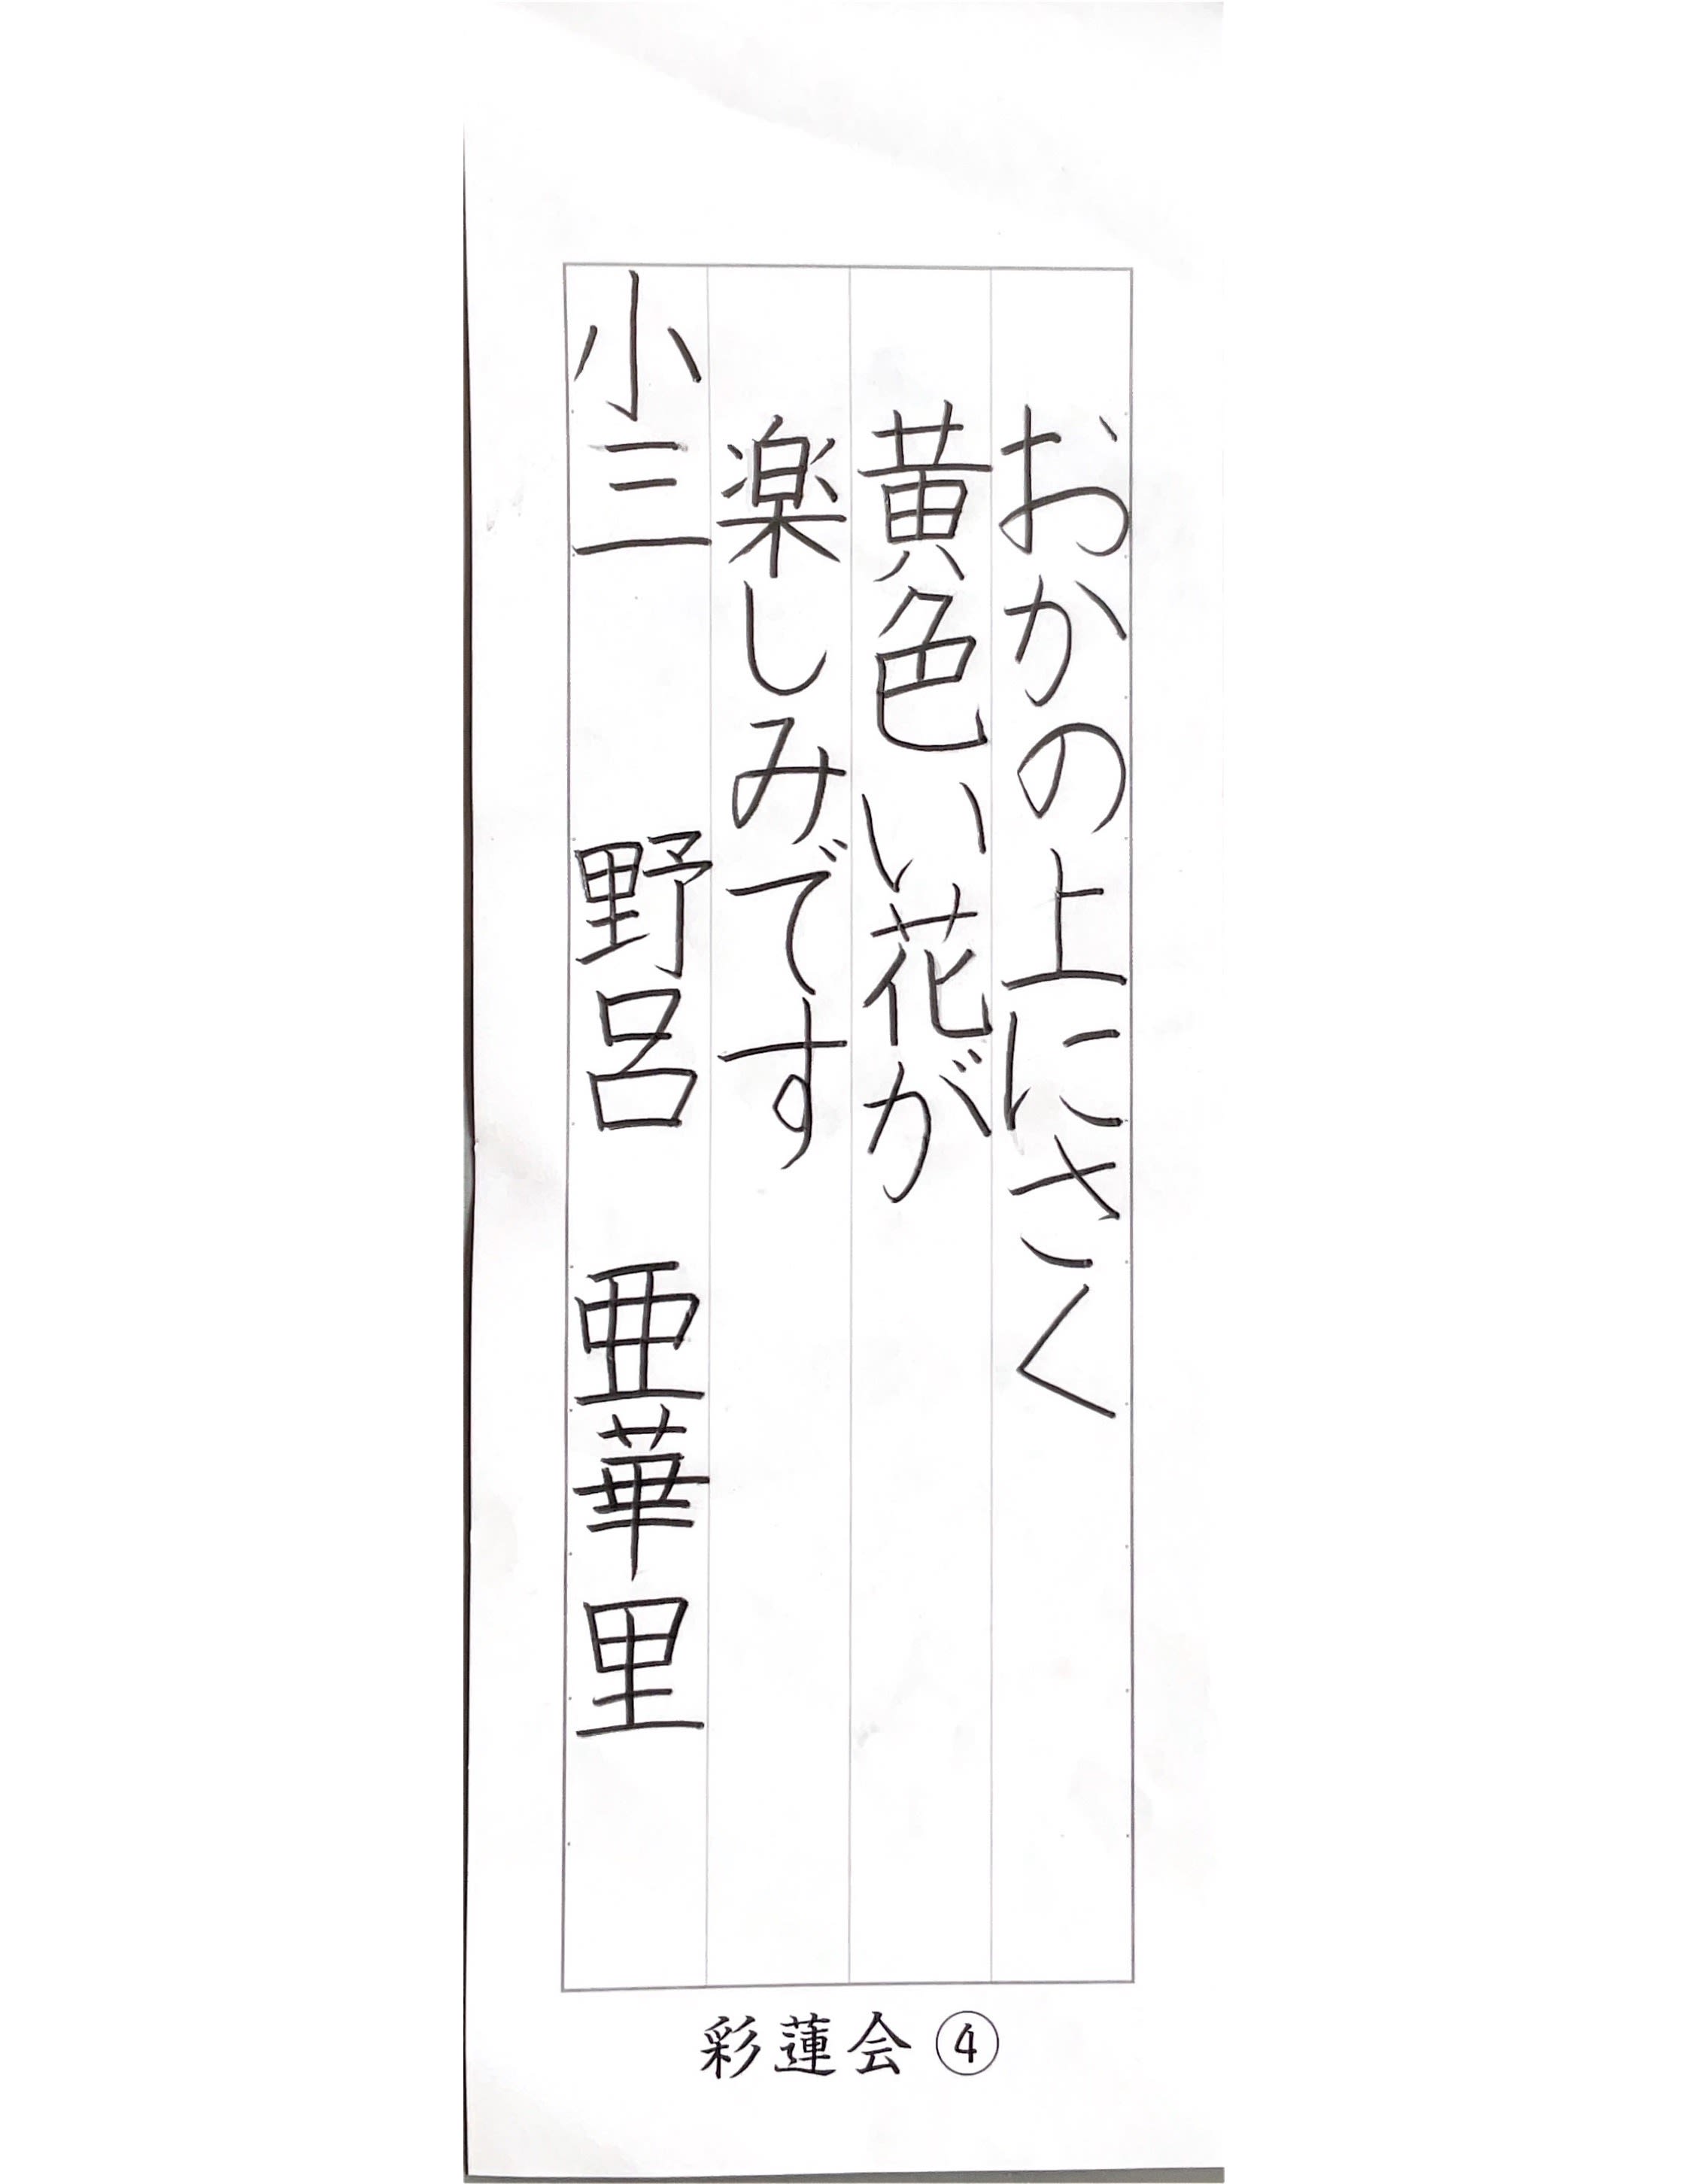 おかの上にさく
黄色い花が
楽しみです
小三 野呂 亜華里
彩蓮会④